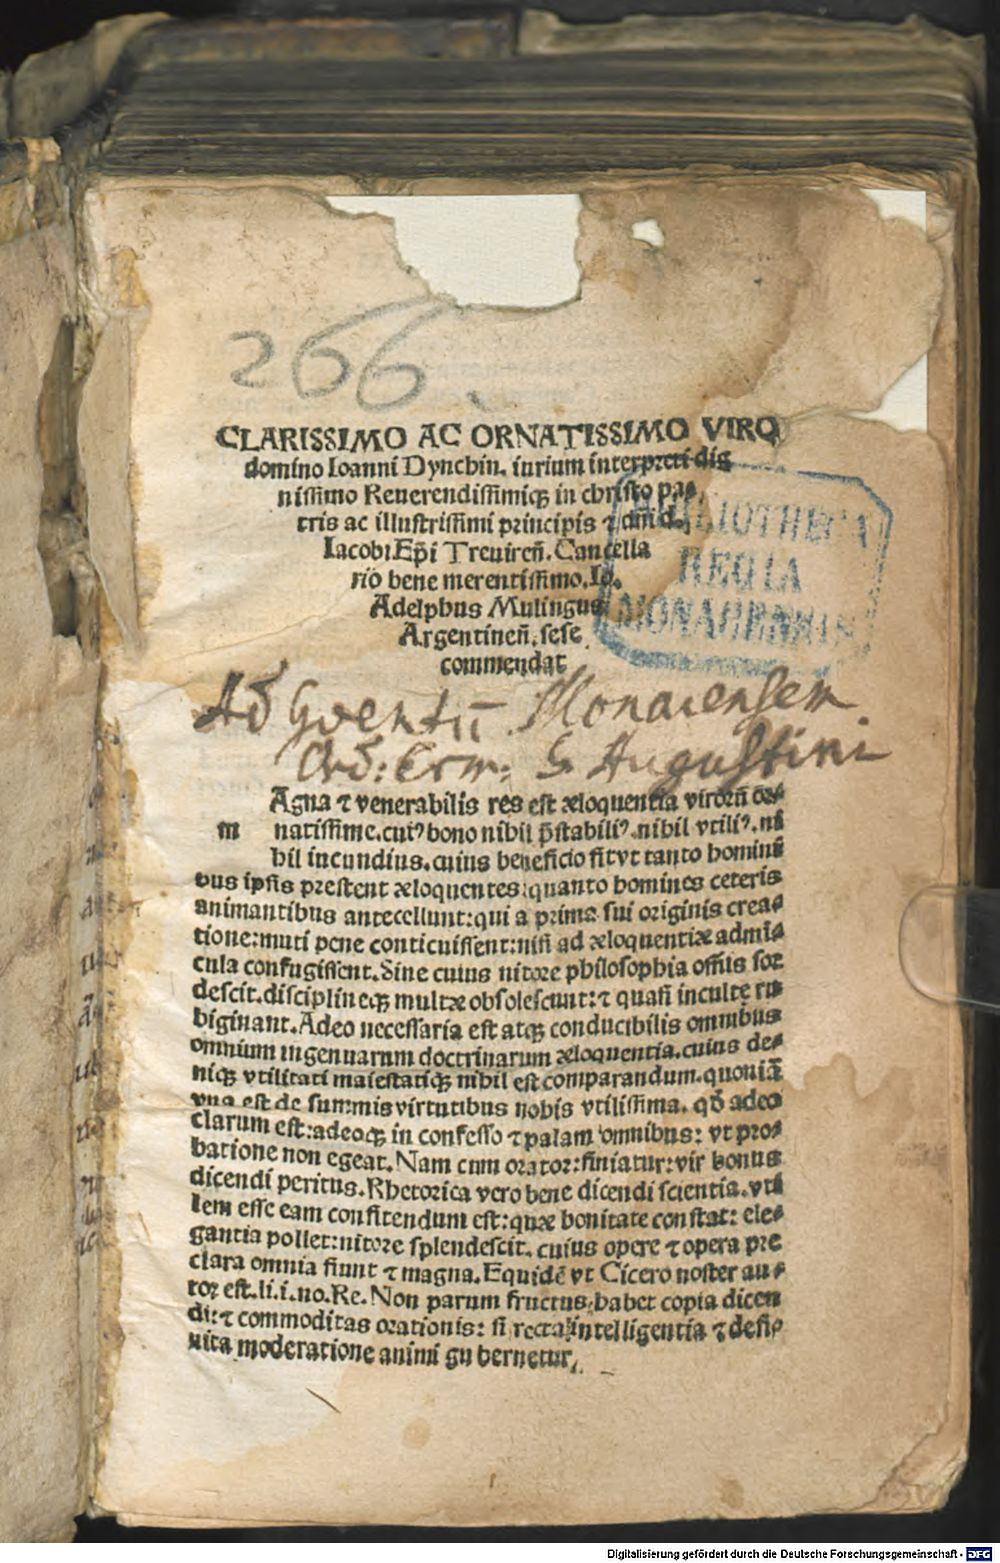 266
CLARISSIMO AC ORNATISSIMO VIRO
domino Ioanni Dynchin. iurium interpreti dig
nissimo Reuerendissimiqꝫ in christo pa⸗
tris ac illustrissimi principis ⁊ dñid.
Iacobi Ep̄i Treuireñ. Cancella
rio bene merentissimo. Io.
Adelphus Mulingus
Argentineñ. sese
commendat
BIBLIOTHECA
REGIA
MONACENSIS
Ad Conentū Monacensem
Ord: Erm: S. Augustini
Agna ⁊ venerabilis res est æloquentia virorū or⸗
m natissime. cuiꝰ bono nibil p̄stabiliꝰ. nibil vtiliꝰ. ni
bil iucundius. cuius beneficio fit vt tanto hominī
bus ipsis prestent æloquentes: quanto homines ceteris
animantibus antecellunt: qui a prima sui originis crea⸗
tione: muti pene conticuissent: nisi ad æloquentiæ admi⸗
cula confugissent. Sine cuius nitore philosophia om̄is sor
descit. disciplineqꝫ multæ obsolescunt: ⁊ quasi inculte ru
biginant. Adeo necessaria est atqꝫ conducibilis omnibus
omnium ingenuarum doctrinarum æloquentia. cuius de⸗
niqꝫ vtilitati maiestatiqꝫ nibil est comparandum. quoniā
vna est de summis virtutibus nobis vtilissima. qđ adeo
clarum est: adeoqꝫ in confesso ⁊ palam omnibus: vt pro⸗
batione non egeat. Nam cum orator: finiatur: vir bonus
dicendi peritus. Rhetorica vero bene dicendi scientia. vti
lem esse eam confitendum est: quæ bonitate constat: ele⸗
gantia pollet: nitore splendescit. cuius opere ⁊ opera pre
clara omnia fiunt ⁊ magna. Equidē vt Cicero noster au⸗
tor est. li. i. no. Re. Non parum fructus habet copia dicen
di: ⁊ commoditas orationis: si recta intelligentia ⁊ defi⸗
nita moderatione animi gubernetur.
Digitalisierung gefördert durch die Deutsche Forschungsgemeinschaft - DFG